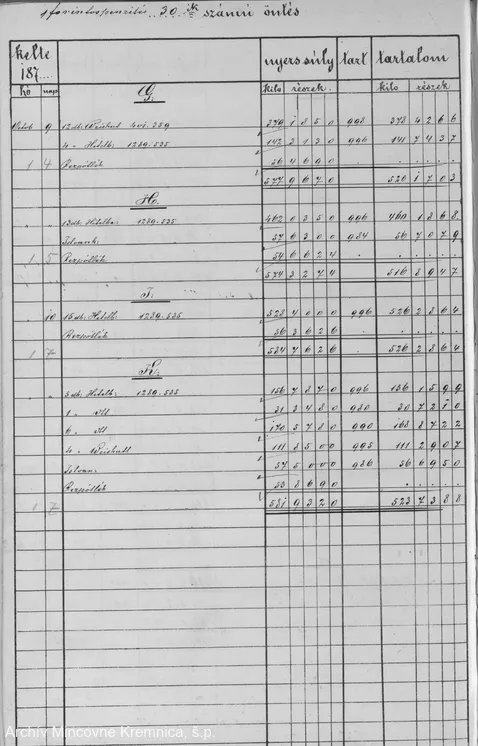 1 forintos pénzelés 30. ik számú öntés
kelte 187... nyers súly tart tartalom
hó nap kilo részek kilo részek
G.
Octob 9 12 db. 379 1 8 5 0 998 378 4 2 6 6
4 " 1289.535 142 3 1 3 0 996 141 7 4 3 7
1 4 Rézpótlék 56 4 6 9 0
577 9 6 7 0 520 1 7 0 3
H.
" " 13 db. 1289.535 462 0 3 5 0 996 460 1 8 6 8
57 6 3 0 0 984 56 7 0 7 9
1 5 Rézpótlék 54 6 6 2 4
574 3 2 7 4 516 8 9 4 7
J.
" 10 15 db. 1289.535 528 4 0 0 0 996 526 2 8 6 4
Rézpótlék 56 3 6 2 6
1 7 584 7 6 2 6 526 2 8 6 4
K.
" " 5 db. 1289.535 156 7 8 7 0 996 156 1 5 9 9
1 " 31 3 4 8 0 980 30 7 2 1 0
6 " 170 5 7 8 0 990 168 8 7 2 2
4 " 111 8 5 0 0 995 111 2 9 0 7
57 5 0 0 0 986 56 6 9 5 0
Rézpótlék 53 8 6 9 0
1 7 581 9 3 2 0 523 7 3 8 8
Archív Mincovne Kremnica, š.p.